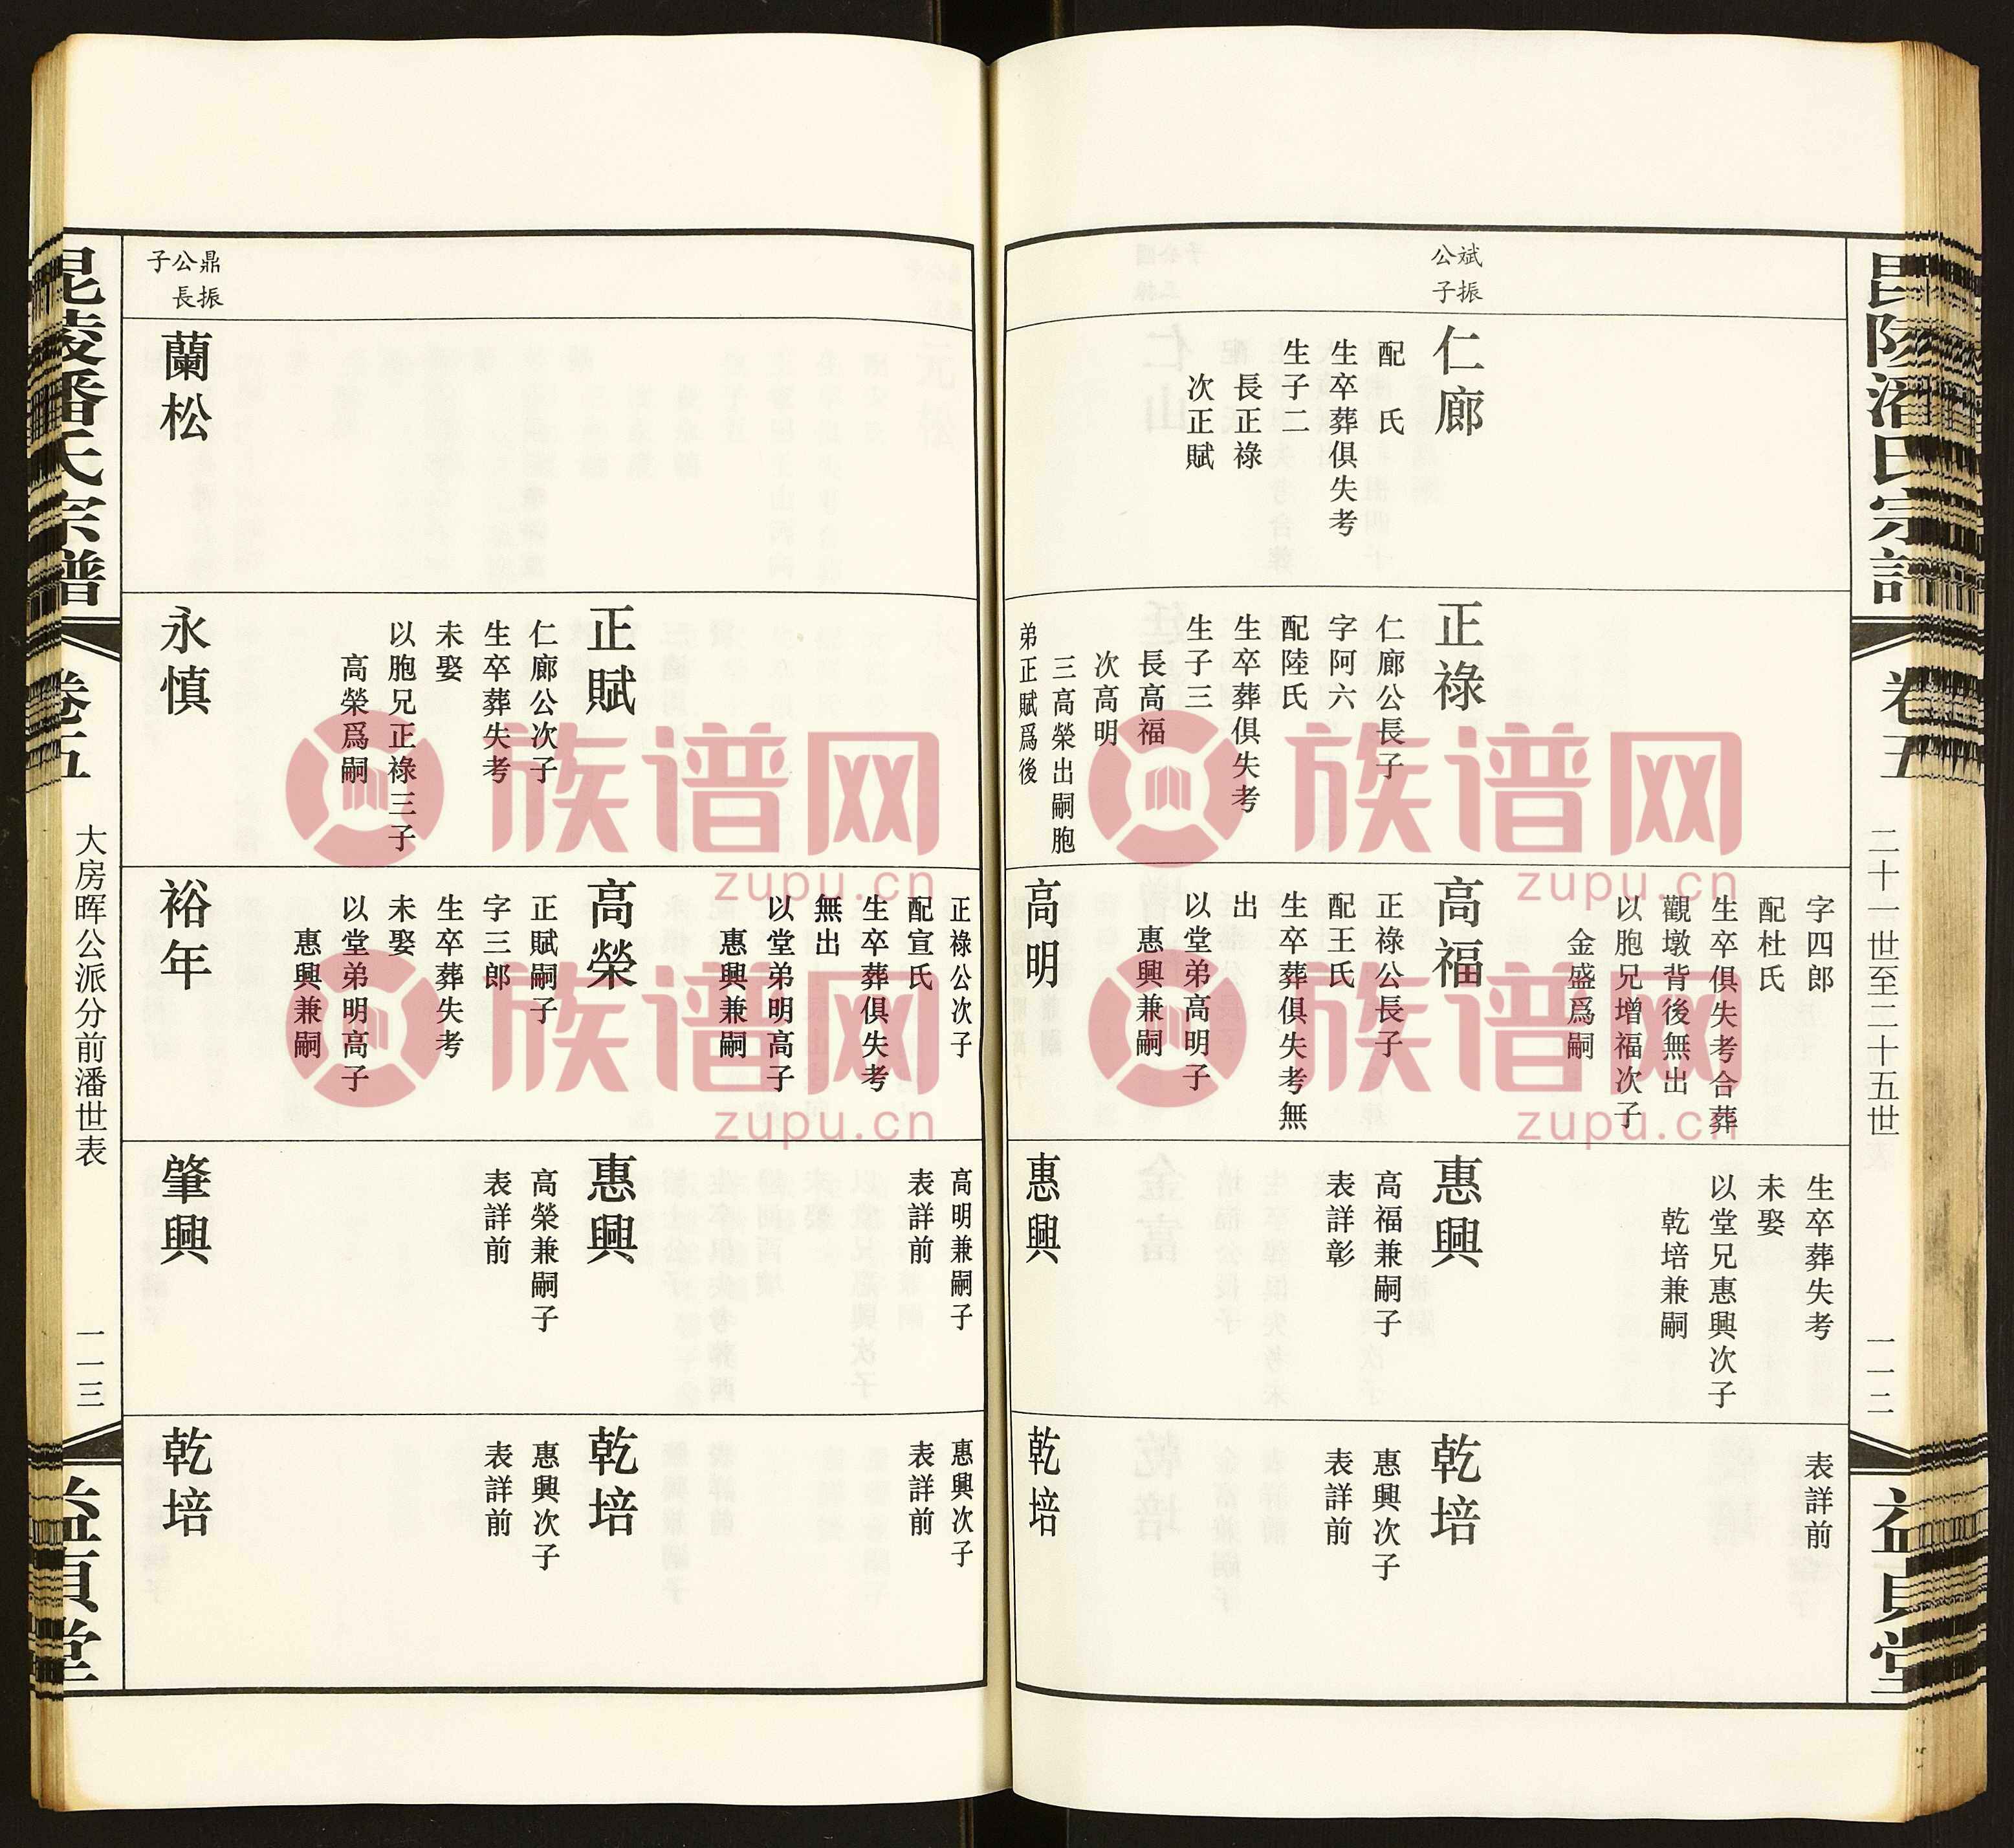 毘陵潘氏宗譜
卷五
二十一世至二十五世
一一二
益
堂
斌振
公子
仁廊
配 氏
生卒葬俱失考
生子二
長正祿
次正賦
正祿
仁廊公長子
字阿六
配陸氏
生卒葬俱失考
生子三
長高福
次高明
三高榮出嗣胞
弟正賦爲後
字四郎
配杜氏
生卒俱失考合葬
觀墩背後無出
以胞兄增福次子
金盛爲嗣
高福
正祿公長子
配王氏
生卒葬俱失考無
出
以堂弟高明子
惠興兼嗣
高明
生卒葬失考
未娶
以堂兄惠興次子
乾培兼嗣
惠興
高福兼嗣子
表詳彰
惠興
表詳前
乾培
惠興次子
表詳前
乾培
正賦
仁廊公次子
生卒葬失考
未娶
以胞兄正祿三子
高榮爲嗣
正祿公次子
配宣氏
生卒葬俱失考
無出
以堂弟明高子
惠興兼嗣
高榮
正賦嗣子
字三郎
生卒葬失考
未娶
以堂弟明高子
惠興兼嗣
高明兼嗣子
表詳前
惠興
高榮兼嗣子
表詳前
惠興次子
表詳前
乾培
惠興次子
表詳前
鼎振
公長
子
蘭松
永慎
裕年
肇興
乾培
毘陵潘氏宗譜
卷五
大房晖公派分前潘世表
一一三
益
堂
族谱网
zupu.cn
族谱网
zupu.cn
族谱网
zupu.cn
族谱网
zupu.cn